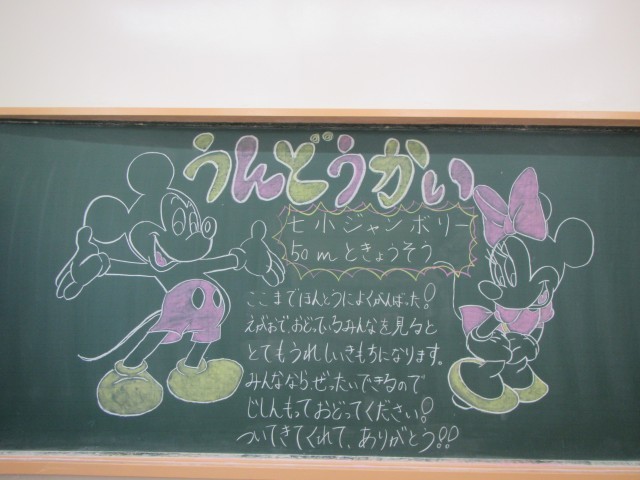 うんどうかい
七小ジャンボリー
50mときょうそう
ここまでほんとうによくがんばった!
えがおで、おどっているみんなを見ると
とてもうれしいきもちになります。
みんななら、ぜったいできるので
じしんもっておどってください!
ついてきてくれて、ありがとう!!